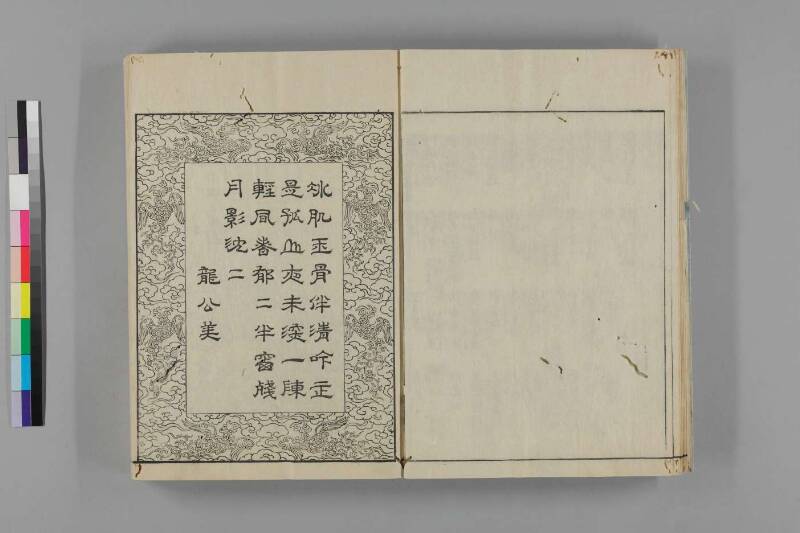 氷肌玉骨伴清吟正
是孤山夜未深一陣
輕風香郁二半窗殘
月影沈二
龍公美